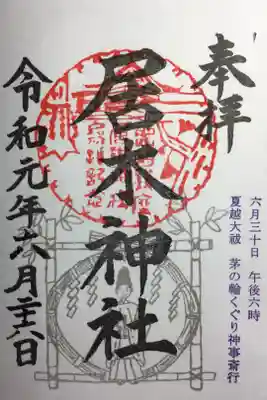 奉拝
六月三十日 午後六時
夏越大祓 茅の輪くぐり神事斎行
居木神社
令和元年六月二十六日